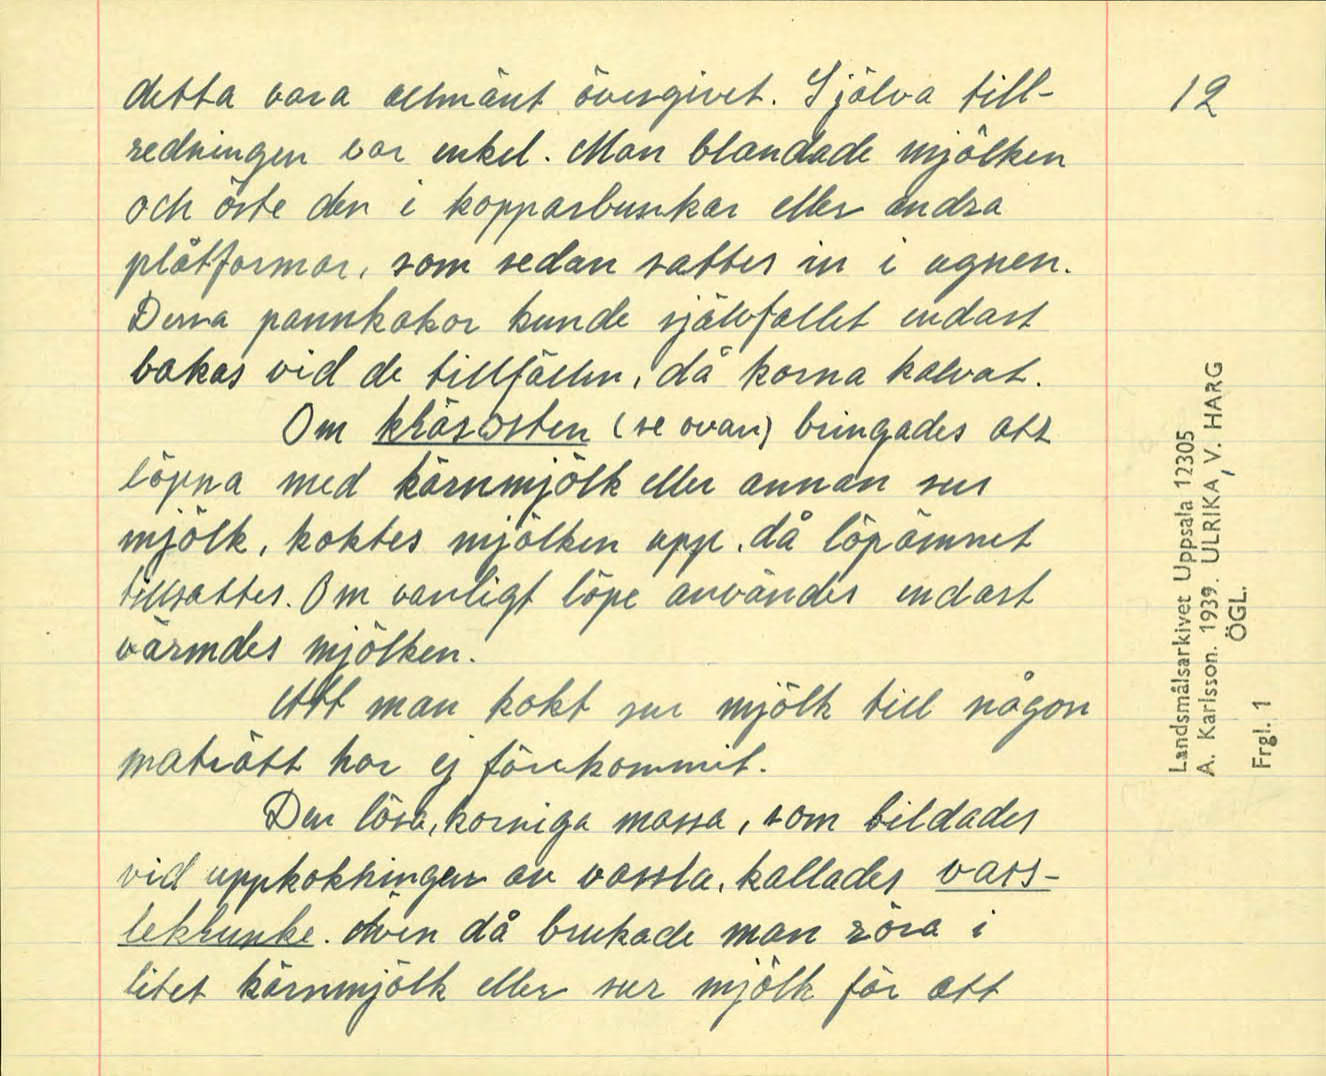 detta vara allmänt övergivet. Själva till-
redningen var enkel. Man blandade mjölken
och öste den i kopparbunkar eller andra
plåtformar, som sedan sattes in i ugnen.
Denna pannkakor kunde självfallet endast
bakas vid de tillfällen, då korna kalvat.
Om kräsosten (se ovan) bringades att
löpna med kärnmjölk eller annan sur
mjölk, koktes mjölken upp, då löpämnet
tillsattes. Om vanligt löpe användes endast
värmdes mjölken.
Att man kokt sur mjölk till någon
maträtt har ej förekommit.
Den lösa, korniga massa, som bildades
vid uppkokningen av vassla, kallades vass-
lekrunke. Även då brukade man röra i
litet kärnmjölk eller sur mjölk för att
12
Landsmålsarkivet Uppsala 12305
A. Karlsson. 1939. ULRIKA, V. HARG
ÖGL.
Frgl. 1